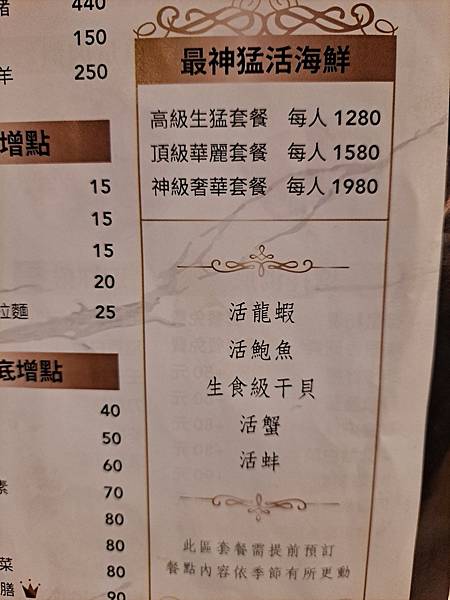 440
150
羊 250
增點
15
15
15
20
拉麵 25
底增點
40
50
60
素 70
80
80
菜 80
膳 90
最神猛活海鮮
高級生猛套餐 每人 1280
頂級華麗套餐 每人 1580
神級奢華套餐 每人 1980
活龍蝦
活鮑魚
生食級干貝
活蟹
活蚌
此區套餐需提前預訂
餐點內容依季節有所更動